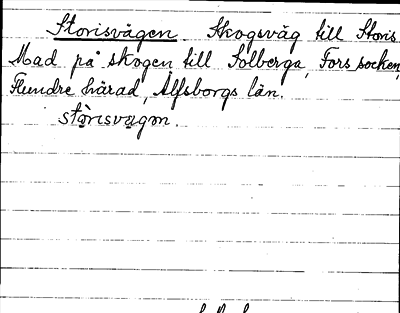 Storisvägen. Skogsväg till Storis
Mad på skogen till Solberga, Fors socken,
Flundre härad, Älfsborgs län.
stòrisvægɷn.